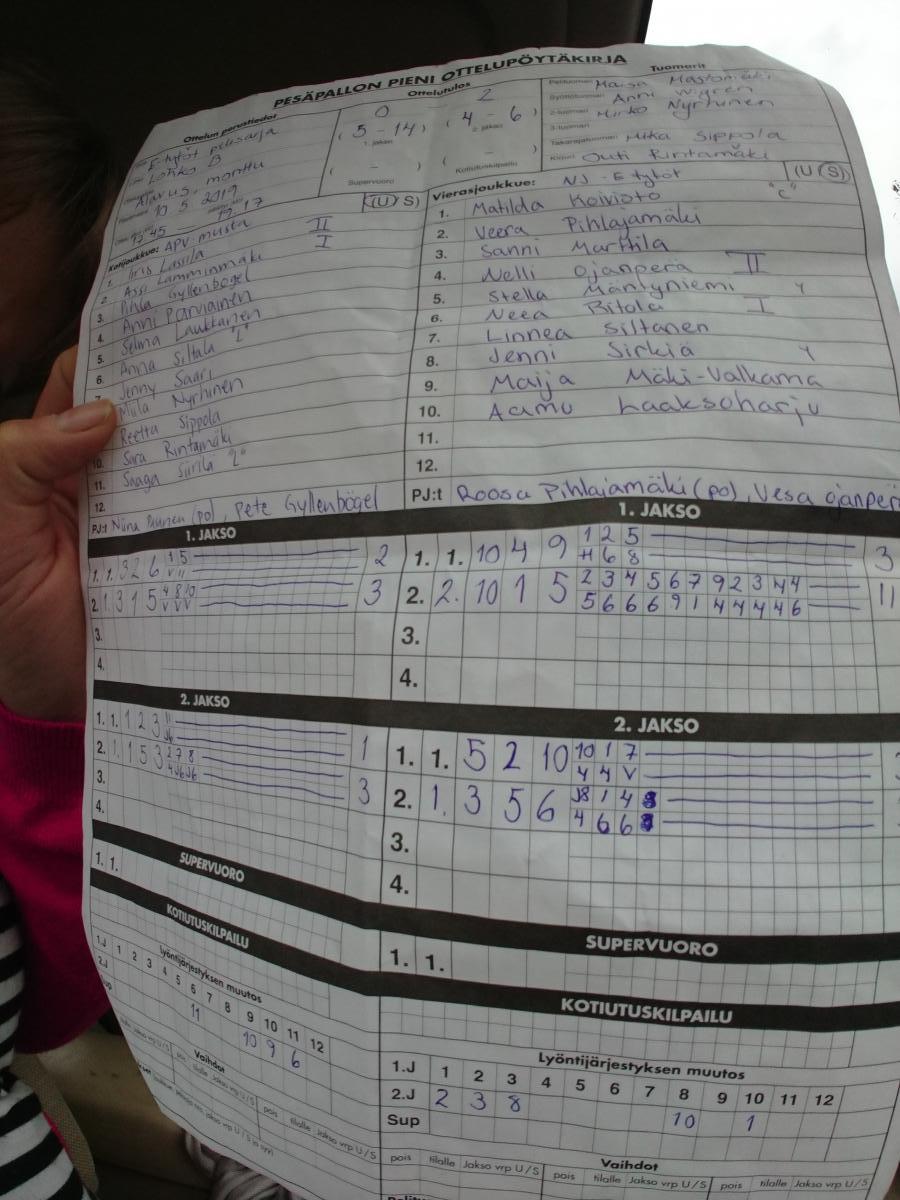 PESÄPALLON PIENI OTTELUPÖYTÄKIRJA
Ottelun perustiedot
E-tytöt pelisarja
Lohko B
Alavus, monttu
10 5 2019
17.45 19.17
Ottelutulos
0 2
(5 - 14) (4 - 6)
1. jakso 2. jakso
( - ) ( - )
Supervuoro Kotiutuskilpailu
Tuomarit
Pelituomari Maisa Mastomäki
Syöttötuomari Anni Wigren
2-tuomari Mirko Nyrhinen
3-tuomari
Takarajatuomari Mika Sippola
Kirjuri Outi Rintamäki
Kotijoukkue: APV musta (U S)
1. Iiris Lassila II
2. Assi Lamminmäki I
3. Pihla Gyllenbögel
4. Anni Parviainen
5. Selma Laukkanen
6. Anna Siltala "L"
7. Jenny Saari
Miila Nyrhinen
Reetta Sippola
10. Sara Rintamäki
11. Saaga Siirilä "L"
12.
PJ:t Niina (po), Pete Gyllenbögel
Vierasjoukkue: NJ - E tytöt (U S)
1. Matilda Koivisto "C"
2. Veera Pihlajamäki
3. Sanni Marttila
4. Nelli Ojanperä II
5. Stella Mäntyniemi Y
6. Neea Ritola I
7. Linnea Siltanen
8. Jenni Sirkiä Y
9. Maija Mäki-Valkama
10. Aamu Laaksoharju
11.
12.
PJ:t Roosa Pihlajamäki (po), Vesa Ojanperä
1. JAKSO
1. 1. 3 2 6 2
2. 1. 3 1 5 4 8 10 3
V V V
3.
4.
2. JAKSO
1. 1. 1 2 3 11 1
2. 1. 1 5 3 2 7 8 3
4 J6 J6
3.
4.
SUPERVUORO
1. 1.
KOTIUTUSKILPAILU
Lyöntijärjestyksen muutos
1.J 1 2 3 4 5 6 7 8 9 10 11 12
2.J 11 10 9 6
Sup
Vaihdot
pois tilalle Jakso vrp U/S pois tilalle Jakso vrp U/S
1. JAKSO
1. 1. 10 4 9 1 2 5 3
H 6 8
2. 2. 10 1 5 2 3 4 5 6 7 9 2 3 4 4 11
5 6 6 6 9 1 4 4 4 4 6
3.
4.
2. JAKSO
1. 1. 5 2 10 10 1 7
4 4 V
2. 1. 3 5 6 J8 1 4
4 6 6
3.
4.
SUPERVUORO
1. 1.
KOTIUTUSKILPAILU
Lyöntijärjestyksen muutos
1.J 1 2 3 4 5 6 7 8 9 10 11 12
2.J 2 3 8 10 1
Sup
Vaihdot
pois tilalle Jakso vrp U/S pois tilalle Jakso vrp U/S pois tilalle Jakso vrp U/S